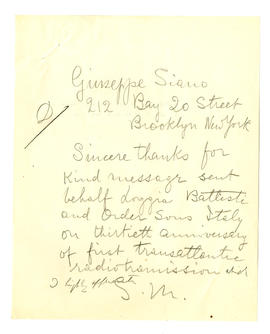 Giuseppe Siano
212 Bay 20 Street
Brooklyn New York
Sincere thanks for
kind message sent
behalf Loggia Battisti
and Order Sons Italy
on thirtieth anniversary
of first transatlantic
radiotramission
I highly
G. M.